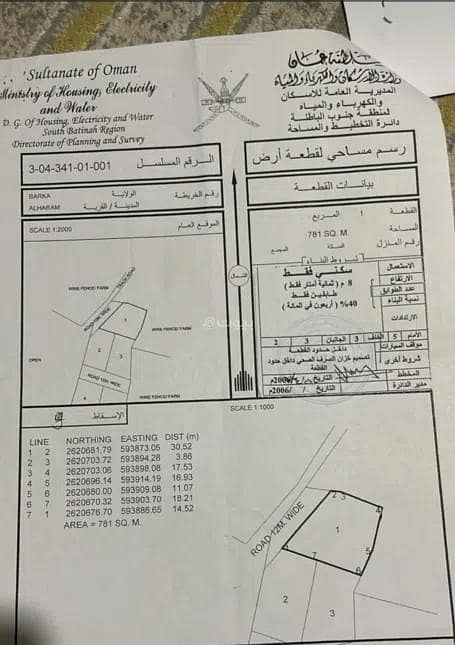 Sultanate of Oman
Ministry of Housing, Electricity
and Water
D. G. Of Housing, Electricity and Water
South Batinah Region
Directorate of Planning and Survey
سلطنة عمان
وزارة الإسكان والكهرباء والمياه
المديرية العامة للاسكان
والكهرباء والمياه
لمنطقة جنوب الباطنة
دائرة التخطيط والمساحة
3-04-341-01-001
الرقم المسلسل
BARKA
الولاية
رقم الخريطة
ALHARAM
المدينة / القرية
SCALE 1:2000
الموقع العام
WIRE FENCED FARM
ROAD 12M. WIDE
1
WIRE FENCED FARM
OPEN
2
3
ROAD 10M. WIDE
4
WIRE FENCED FARM
الاسقاط
الشمال
رسم مساحي لقطعة أرض
بيانات القطعة
القطعة
1
المربع
المساحة
781 SQ. M.
رقم المنازل
السكة
المجمع
شروط البناء
الاستعمال
سكني فقط
الارتفاع
8 م ( ثمانية أمتار فقط )
عدد الطوابق
طابقين فقط
نسبة البناء
40% ( أربعون في المائة )
الارتدادات
الأمام 5 الخلف 3 الجانبان 3 2
موقف السيارات
داخل حدود القطعة
شروط أخرى
تصميم خزان الصرف الصحي داخل حدود
القطعة
المخطط
التاريخ
2006م
مدير الدائرة
التاريخ
2006م
SCALE 1:1000
LINE NORTHING EASTING DIST (m)
1 2 2620681.79 593873.05 30.52
2 3 2620703.72 593894.28 3.86
3 4 2620703.06 593898.08 17.53
4 5 2620696.14 593914.19 16.93
5 6 2620680.00 593909.08 11.07
6 7 2620670.32 593903.70 18.21
7 1 2620676.70 593886.65 14.52
AREA = 781 SQ. M.
ROAD 12M. WIDE
2
3
4
1
5
7
6
2
3